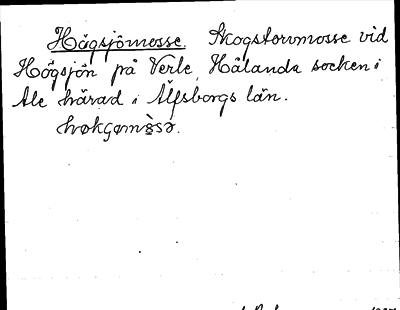 Högsjömosse. Skogstorvmosse vid
Högsjön på Verle, Hålanda socken i
Ale härad i Älfsborgs län.